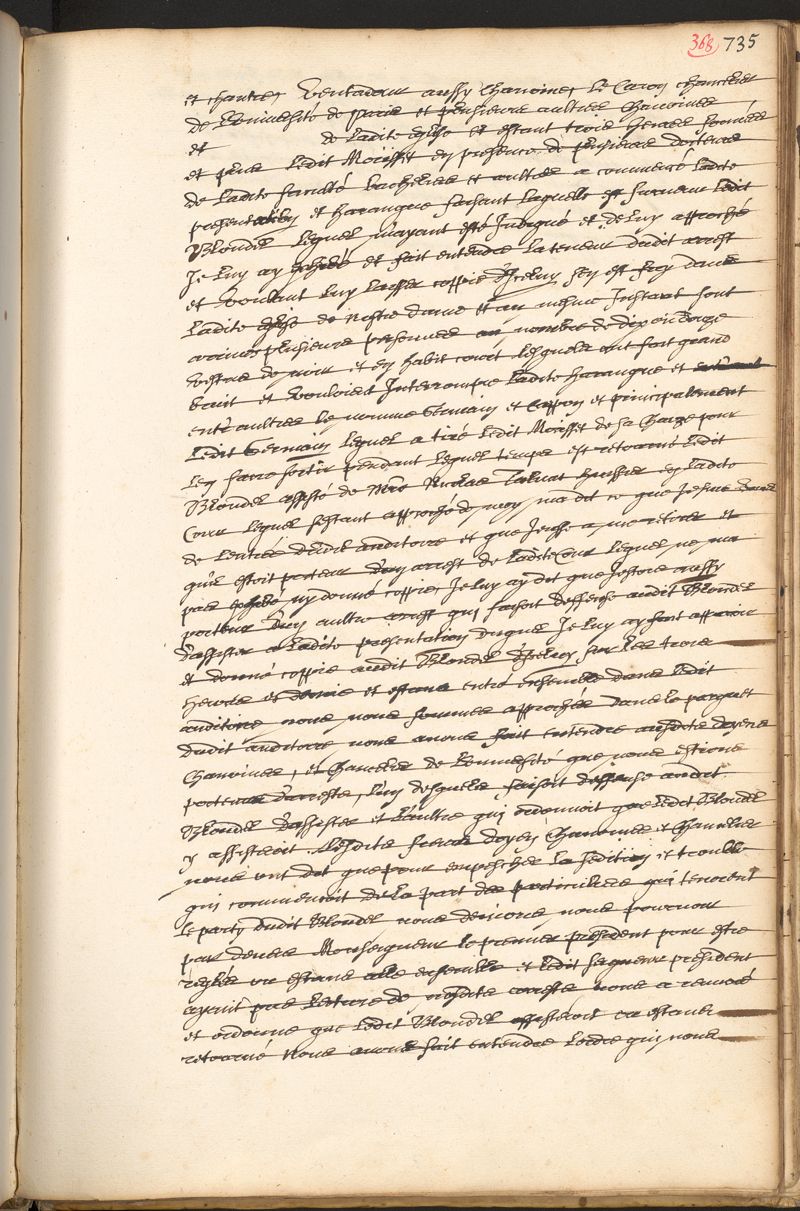 368 735
et chantre, Ventadour aussy Chanoine, Le Caron chancelier
de Luniversité de paris et plusieurs aultres Chanoines
et de ladite eglise et estant trois heures sonnées
et plus Ledit Moisset en presence de plusieurs docteurs
de Ladite faculté bacheliers et aultres a commencé Ladite
presentation et harangue faisant Laquelle est survenu Ledit
Blondel Lequel m'ayant esté Indiqué et de Luy approché
Je Luy ay exhibé et fait entendre La teneur dudit arrest
et voulant Luy laisser coppie d'Iceluy s'en est fuy dans
Ladite eglise de Nostre dame et au mesme Instant sont
arrivés plusieurs personnes au nombre de dix ou douze
vestus de noir et en habit court Lesquels ont fait grand
bruit et vouloient Interrompre Ladite harangue et
entr'aultres le nommé Germain et Cappon et principalement
Ledit Germain Lequel a tiré Ledit Moisset de sa Chaize pour
Len faire sortir pendant Lequel temps est retourné Ledit
Blondel assisté de Mre Nicolas Talvat huissier en Ladite
Cour Lequel s'estant approché de moy m'a dit ce que Je
de Lentrée dudit auditoire et que J'eusse a me retirer et
qu'il estoit porteur d'un arrest de Ladite Cour Lequel ne m'a
pas exhibé ny donné coppie, Je Luy ay dit que J'estois aussy
porteur d'un aultre arrest qui faisoit deffense audit Blondel
d'assister a Ladite presentation duquel Je Luy ay fait apparoir
et donné coppie audit Blondel d'Iceluy sur Les trois
heures et demie et estans entré ensemble dans Ledit
auditoire nous nous sommes approchés dans le parquet
dudit auditoire nous avons fait entendre ausdits doyen
Chanoines, et Chancelier de Luniversité que nous estions
porteurs d'arrests, L'un desquels faisoit deffense audit
Blondel d'assister et L'aultre qui ordonnoit que Ledit Blondel
y assisteroit Lesdits sieurs doyen Chanoines et Chancelier
nous ont dit que pour empescher La sedition et trouble
qui commencoit de La part des particuliers qui tenoient
Le party dudit Blondel nous devions nous pourvoir
par devers Monseigneur Le premier president pour estre
reglés ou estans allé ensemble et Ledit seigneur president
ayant pris Lecture de nosdits arrests nous a renvoié
et ordonné que Ledit Blondel assisteroit ou estans
retourné Nous avons fait entendre Lordre qui nous